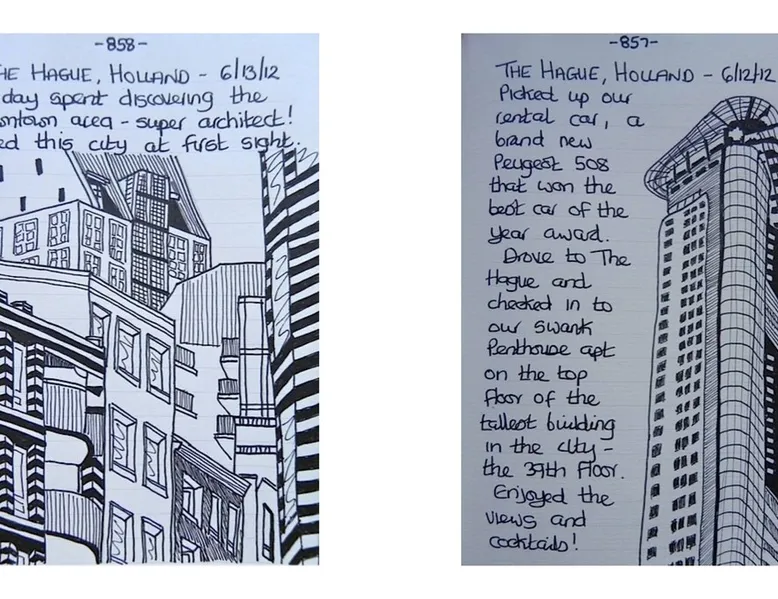 -858-
HE HAGUE, HOLLAND - 6/13/12
day spent discovering the
wntown area - super architect!
ed this city at first sight.
-857-
THE HAGUE, HOLLAND - 6/12/12
Picked up our
rental car, a
brand new
Peugeot 508
that won the
best car of the
year award.
Drove to The
Hague and
checked in to
our swank
Penthouse apt
on the top
floor of the
tallest building
in the city -
the 39th Floor.
Enjoyed the
views and
cocktails!